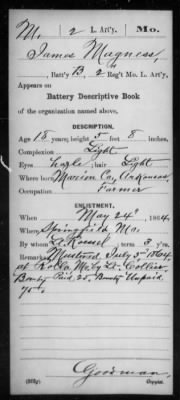 M. 2 L. Art'y. Mo.
James Magness,
, Batt'y B, 2" Reg't Mo. L. Art'y.
Appears on
Battery Descriptive Book
of the organization named above.
DESCRIPTION.
Age 18 years; height 5 feet 8 inches.
Complexion Light
Eyes Hazle; hair Light
Where born Marion Co, Arkansas
Occupation Farmer
ENLISTMENT.
When May 24", 1864.
Where Springfield Mo.
By whom term 3 y'rs.
Remarks Mustered July 5" 1864
at Rolla Mo by Lt. Collier.
Bounty Paid 25, Bounty Unpaid
75
Goodman
Copyist.